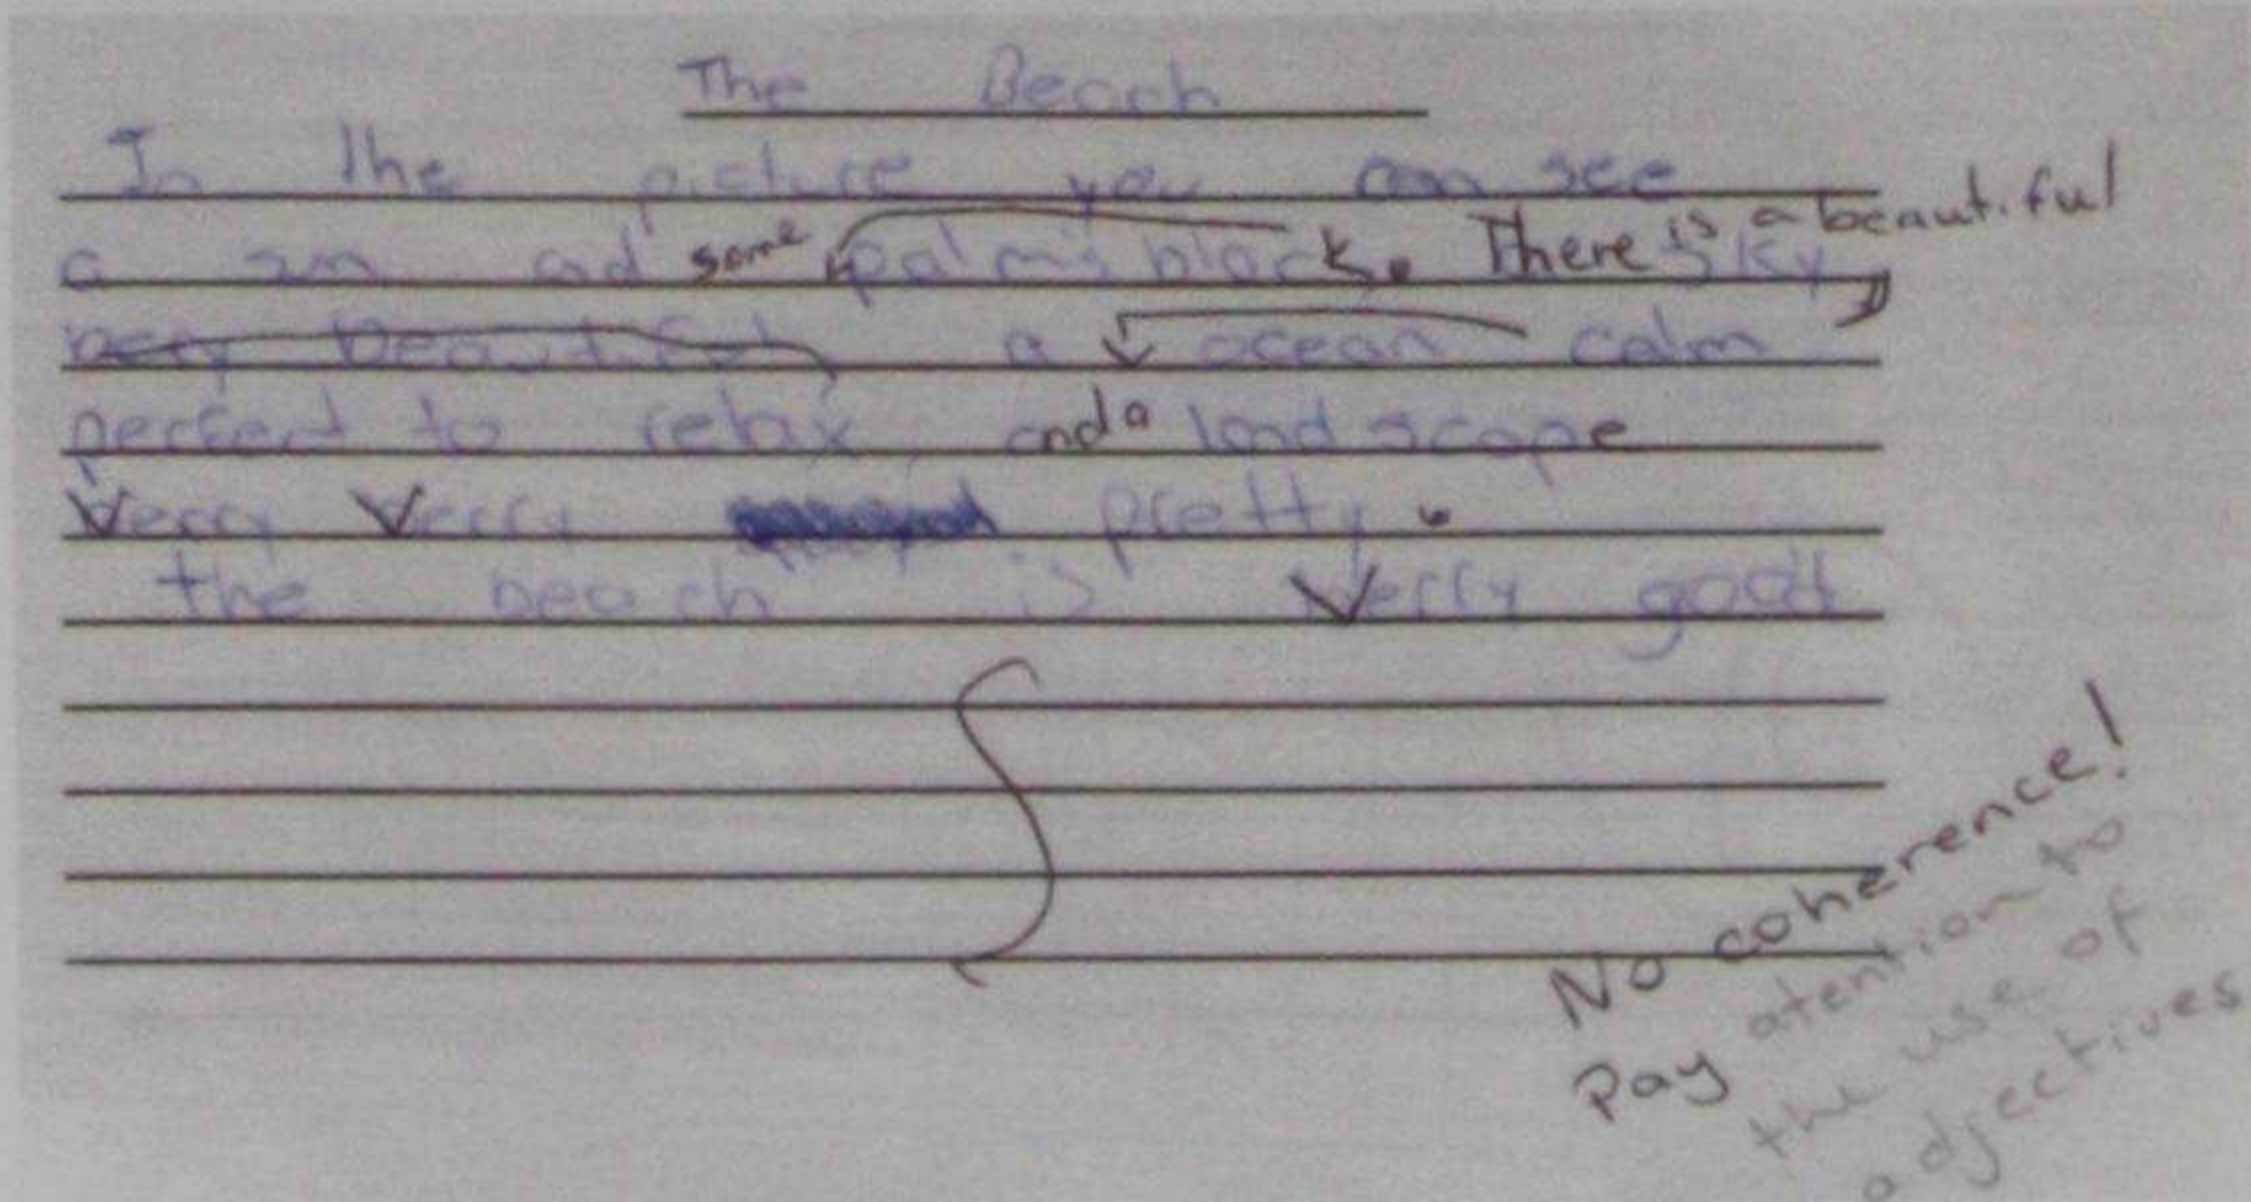 The Beach
In the picture you can see
is a beautiful
a sun and some palms black. There sky
very beautiful, a ocean calm
perfect to relax, and a landscape
Verry Verry pretty.
the beach is Verry good
No coherence!
Pay atention to
the use of
adjectives